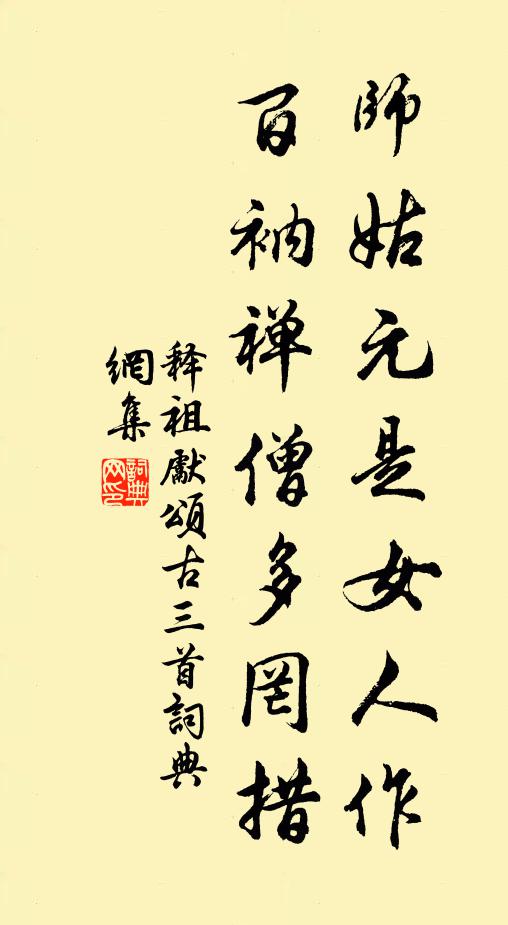 師姑元是女人作
百衲禅僧多罔措
释祖獻頌古三首詞典
網集
詞典
网印